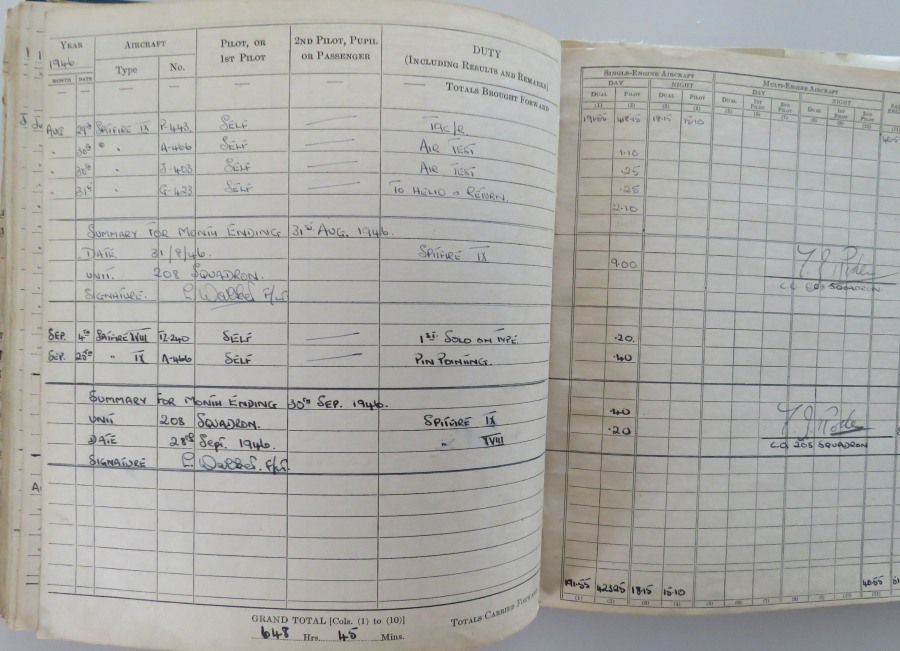 YEAR AIRCRAFT PILOT, OR 1ST PILOT 2ND PILOT, PUPIL OR PASSENGER DUTY (INCLUDING RESULTS AND REMARKS)
1946. Type No.
MONTH DATE
TOTALS BROUGHT FORWARD
AUG 29th SPITFIRE IX P-443 SELF TAC/R.
" 30th " " A-466 SELF AIR TEST
" 30th " J-403 SELF AIR TEST
" 31st " G-423 SELF TO HELIO & RETURN.
SUMMARY FOR MONTH ENDING 31st AUG. 1946.
DATE 31/8/46. SPITFIRE IX
UNIT. 208 SQUADRON.
SIGNATURE. F/Lt
SEP. 4th SPITFIRE XVIII TZ-240 SELF 1st SOLO ON TYPE.
SEP. 25th " IX A-466 SELF PIN POINTING.
SUMMARY FOR MONTH ENDING 30th SEP. 1946.
UNIT 208 SQUADRON. SPITFIRE IX
DATE 28th Sept. 1946. " XVIII
SIGNATURE F/Lt.
GRAND TOTAL [Cols. (1) to (10)]
648 Hrs. 45 Mins.
TOTALS CARRIED FORWARD
SINGLE-ENGINE AIRCRAFT MULTI-ENGINE AIRCRAFT
DAY NIGHT DAY NIGHT
DUAL PILOT DUAL PILOT DUAL 1ST PILOT 2ND PILOT DUAL 1ST PILOT 2ND PILOT
(1) (2) (3) (4) (5) (6) (7) (8) (9) (10)
191.55 18.15 15.10
1.10
.25
.25
2.10
9.00
C.O. 208 SQUADRON
.20
.40
.40
.20
C.O. 208 SQUADRON
191.55 423.25 18.15 15.10 40.55
(1) (2) (3) (4) (5) (6) (7) (8) (9) (10)